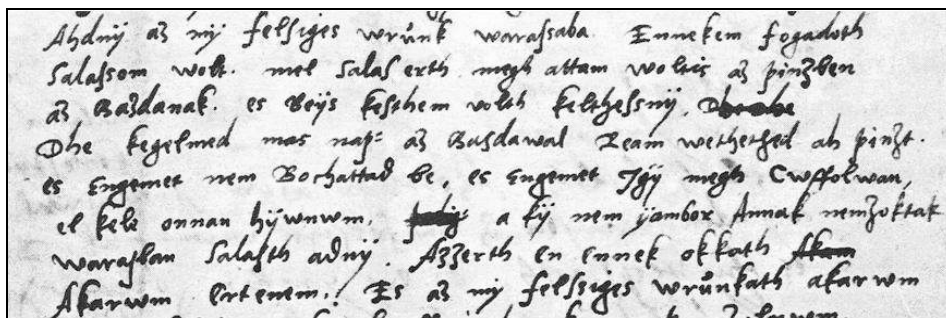 Ahdnÿ az mÿ felsiges wrŭnk warassaba. Ennekem fogadoth
Salassom wolt. mel Salas erth megh attam woltis az pinzben
az Gazdanak. es Beÿs kesthem volth kelthessnÿ.
Dhe kegelmed mas nap: az Gasdawal Ream wethethed ah pinzt.
es Engemet nem Bochattad be, es Engemet Igÿ megh Cwffolwan,
el kele onnan hÿwnwm. a kÿ nem jambor Annak nemzoktak
warasban Salasth adnÿ. Azzerth en ennek okkath
Akarwm Ertenem. Es az mÿ felssiges wrŭnkath akarwm